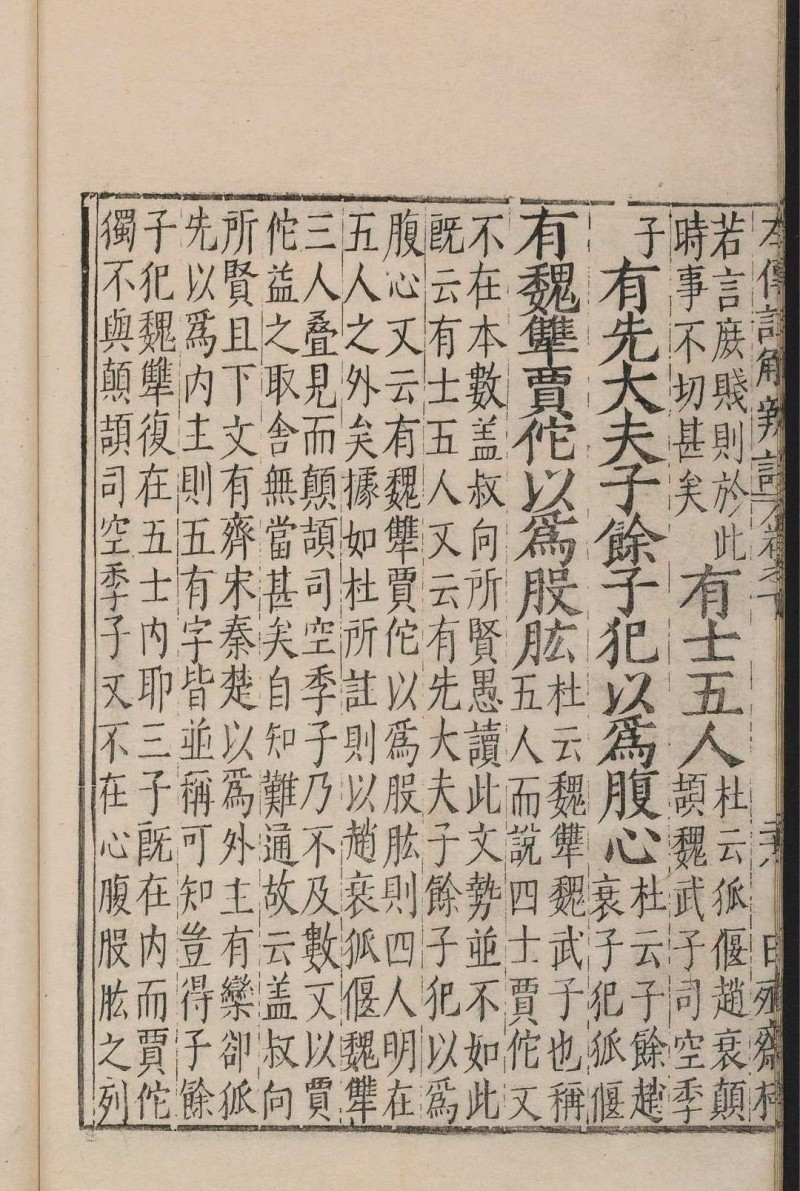 傳註解辨誤 卷之 日殖齋梓
若言庻賤則於此
時事不切甚矣
有士五人
杜云狐偃趙衰顛
頡魏武子司空季
子
有先大夫子餘子犯以爲腹心
杜云子餘趙
衰子犯狐偃
有魏犨賈佗以爲股肱
杜云魏犨魏武子也稱
五人而說四士賈佗又
不在本數盖叔向所賢愚讀此文勢並不如此
既云有士五人又云有先大夫子餘子犯以爲
腹心又云有魏犨賈佗以爲股肱則四人明在
五人之外矣據如杜所註則以趙衰狐偃魏犨
三人叠見而顛頡司空季子乃不及數又以賈
佗益之取舍無當甚矣自知難通故云盖叔向
所賢且下文有齊宋秦楚以爲外主有欒卻狐
先以爲内主則五有字皆並稱可知豈得子餘
子犯魏犨復在五士内耶三子既在内而賈佗
獨不與顛頡司空季子又不在心腹股肱之列